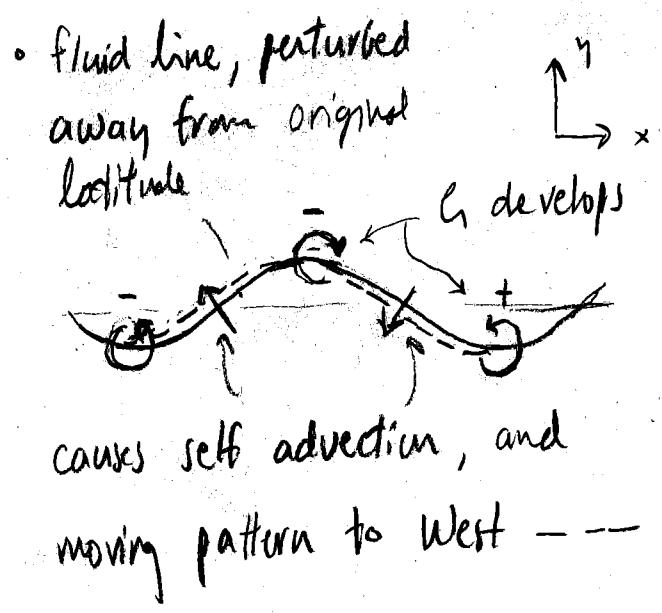 • fluid line, perturbed
away from original
latitude
y
x
ζ develops
-
-
+
causes self advection, and
moving pattern to West - - -